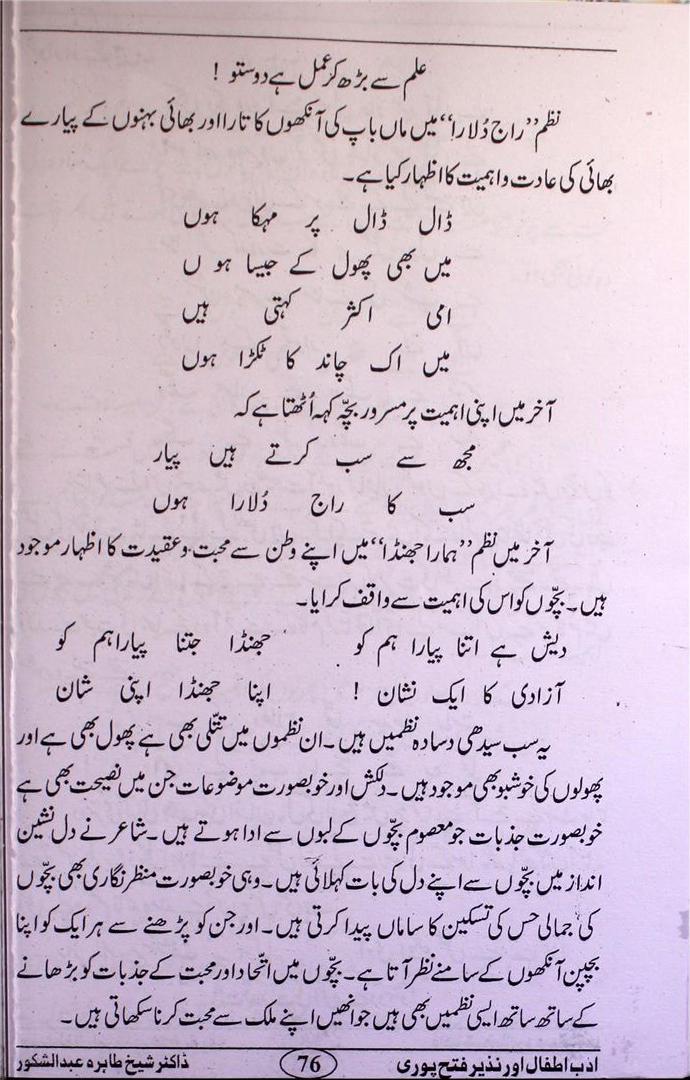 علم سے بڑھ کر عمل ہے دوستو !
نظم ’’راج دُلارا‘‘ میں ماں باپ کی آنکھوں کا تارا اور بھائی بہنوں کے پیارے
بھائی کی عادت و اہمیت کا اظہار کیا ہے۔
ڈال ڈال پر مہکا ہوں
میں بھی پھول کے جیسا ہو ں
امی اکثر کہتی ہیں
میں اک چاند کا ٹکڑا ہوں
آخر میں اپنی اہمیت پر مسرور بچّہ کہہ اُٹھتا ہے کہ
مجھ سے سب کرتے ہیں پیار
سب کا راج دُلارا ہوں
آخر میں نظم ’’ہمارا جھنڈا‘‘ میں اپنے وطن سے محبت و عقیدت کا اظہار موجود
ہیں۔ بچّوں کو اس کی اہمیت سے واقف کرایا۔
دیش ہے اتنا پیارا ہم کو جھنڈا جتنا پیارا ہم کو
آزادی کا ایک نشان ! اپنا جھنڈا اپنی شان
یہ سب سیدھی و سادہ نظمیں ہیں۔ ان نظموں میں تتلی بھی ہے پھول بھی ہے اور
پھولوں کی خوشبو بھی موجود ہیں۔ دلکش اور خوبصورت موضوعات جن میں نصیحت بھی ہے
خوبصورت جذبات جو معصوم بچّوں کے لبوں سے ادا ہوتے ہیں۔ شاعر نے دل نشین
انداز میں بچّوں سے اپنے دل کی بات کہلائی ہیں۔ وہی خوبصورت منظر نگاری بھی بچّوں
کی جمالی حس کی تسکین کا ساماں پیدا کرتی ہیں۔ اور جن کو پڑھنے سے ہر ایک کو اپنا
بچپن آنکھوں کے سامنے نظر آتا ہے۔ بچّوں میں اتّحاد اور محبت کے جذبات کو بڑھانے
کے ساتھ ساتھ ایسی نظمیں بھی ہیں جو انھیں اپنے ملک سے محبت کرنا سکھاتی ہیں۔
ادب اطفال اور نذیر فتح پوری 76 ڈاکٹر شیخ طاہرہ عبدالشکور